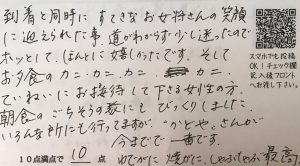 到着と同時に すてきなお女将さんの笑顔
に迎えられた事、道がわからず少し迷ったので
ホッとして、ほんとに嬉しかったです。そして
お夕食のカニ・カニ・カニ・カニ
ていねいにお接待して下さる女性の方。
朝食のごちそうの数にもびっくりしました
いろんな所にも行ってますが、"かどや"さんが
今までで 一番です。
10点満点で 10 点 ゆでがに 焼がに、しゃぶしゃぶ 最高
スマホでも投稿
OK!チェック欄
記入後フロント
へお渡し下さい。